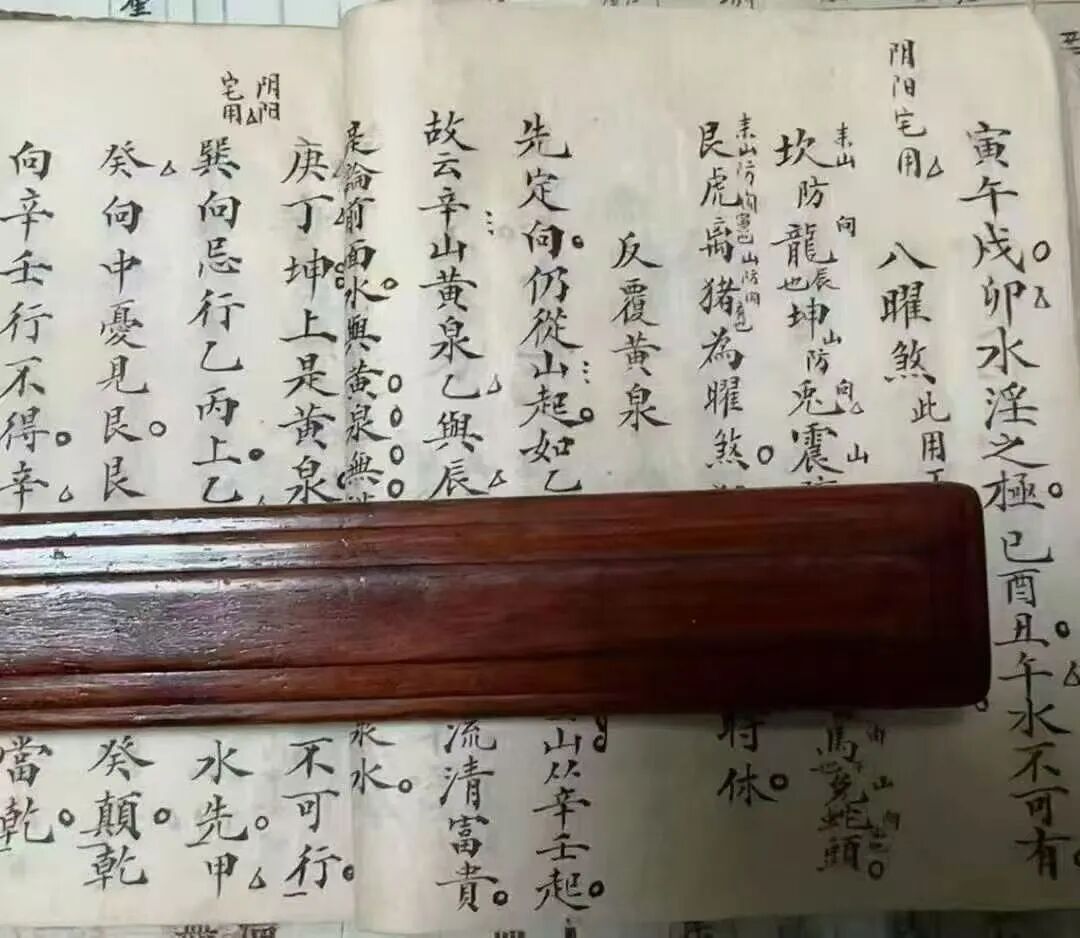 寅午戌卯水淫之極 巳酉丑午水不可有
阴阳宅用
八曜煞 此用
坎防龍坤防兎震 馬 兎蛇頭
来山 向辰也 山 向 山
艮虎离猪為曜煞 時休
来山防向寅也山防向
反覆黄泉
先定向仍從山起如乙 山从辛壬起
故云辛山黄泉乙與辰 流清富貴
是論前面水與黄泉無 泉水
庚丁坤上是黄泉 不可行
阴阳宅用
巽向忌行乙丙上乙 水先甲
癸向中憂見艮艮 癸顛乾
向辛壬行不得辛 當乾